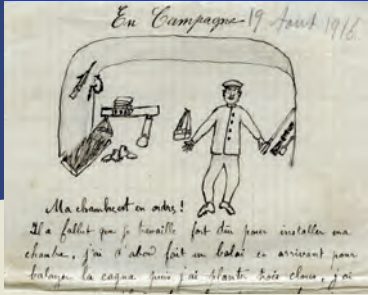 En Campagne 19 Aout 1916
Ma chambre est en ordre !
Il a fallut que je travaille fort dûr pour installer ma
chambre, j'ai d'abord fait un balai en arrivant pour
balayer la cagna puis j'ai planté trois clous, j'ai